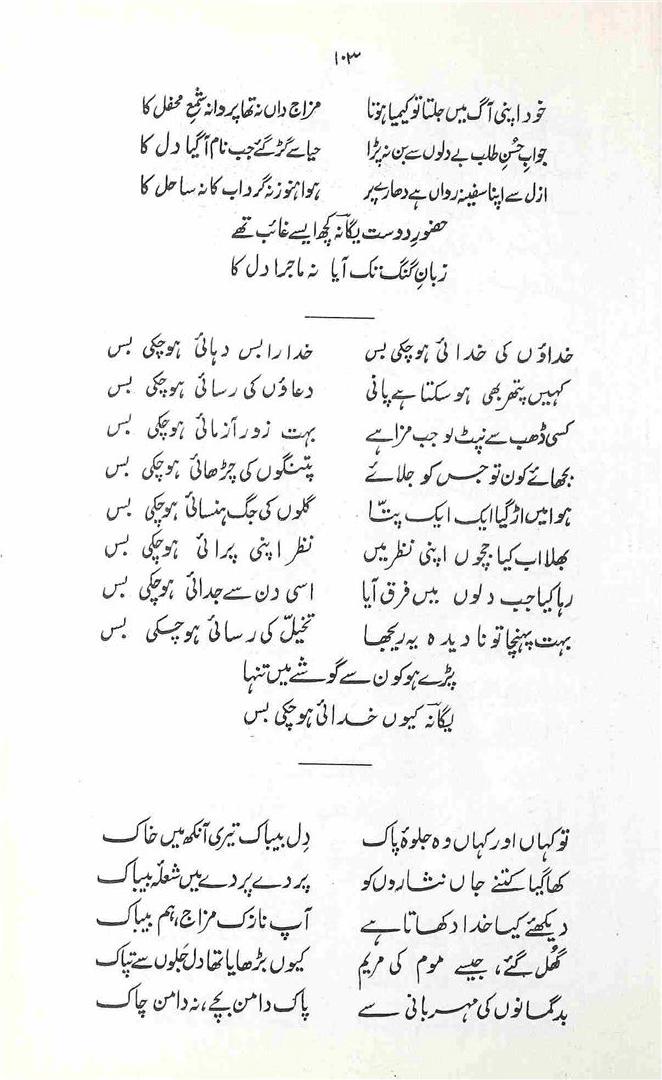 ۱۰۳
خود اپنی آگ میں جلتا تو کیمیا ہوتا مزاج داں نہ تھا پروانہ شمعِ محفل کا
جوابِ حسنِ طلب بے دلوں سے بن نہ پڑا حیا سے گڑ گئے جب نام آگیا دل کا
ازل سے اپنا سفینہ رواں ہے دھارے پر ہوا ہنوز نہ گرداب کا نہ ساحل کا
حضورِ دوست یگانہؔ کچھ ایسے غائب تھے
زبانِ گنگ تک آیا نہ ماجرا دل کا
خداؤں کی خدائی ہو چکی بس خدارا بس دہائی ہو چکی بس
کہیں پتھر بھی ہو سکتا ہے پانی دعاؤں کی رسائی ہو چکی بس
کسی ڈھب سے نپٹ لو جب مزا ہے بہت زور آزمائی ہو چکی بس
بجھائے کون تو جس کو جلائے پتنگوں کی چڑھائی ہو چکی بس
ہوا میں اڑ گیا ایک ایک پتّا گلوں کی جگ ہنسائی ہو چکی بس
بھلا اب کیا جچوں اپنی نظر میں نظر اپنی پرائی ہو چکی بس
رہا کیا جب دلوں میں فرق آیا اسی دن سے جدائی ہو چکی بس
بہت پہنچا تو نادیدہ پہ ریجھا تخیّل کی رسائی ہو چکی بس
پڑے ہو کون سے گوشے میں تنہا
یگانہؔ کیوں خدائی ہو چکی بس
تو کہاں اور کہاں وہ جلوۂ پاک دلِ بیباک تیری آنکھ میں خاک
کھا گیا کتنے جاں نثاروں کو پردے پردے میں شعلۂ بیباک
دیکھئے کیا خدا دکھاتا ہے آپ نازک مزاج، ہم بیباک
گھل گئے، جیسے موم کی مریم کیوں بڑھایا تھا دل جلوں سے تپاک
بدگمانوں کی مہربانی سے پاک دامن بچے، نہ دامن چاک